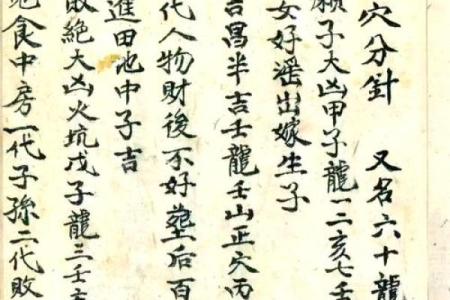 穴分針 又名六十龍
顛子大凶甲子龍一二亥七壬
女好遥出嫁生子
吉昌半吉壬龍壬山正穴丙
代人物財後不好塟后百
進田池中子吉
敗絶大凶火坑戊子龍三壬
地食中房一代子孫二代敗